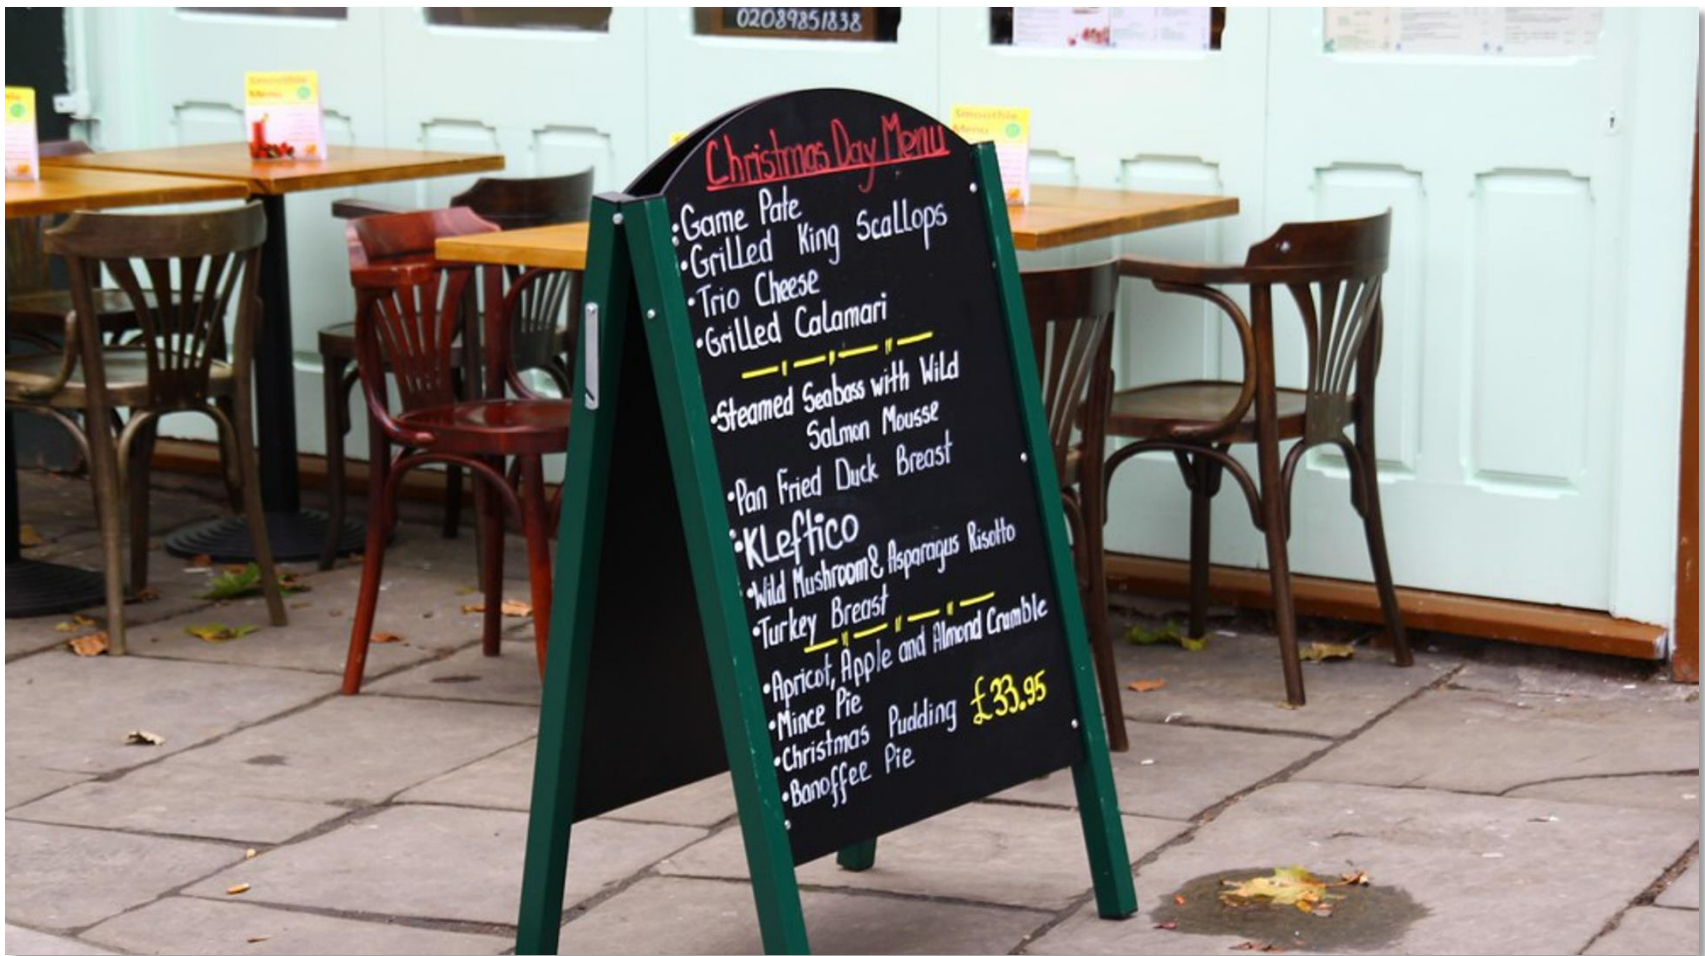 02089851838
Smoothie
Menu
Smoothie
Menu
Christmas Day Menu
•Game Pate
•Grilled King Scallops
•Trio Cheese
•Grilled Calamari
•Steamed Seabass with Wild
Salmon Mousse
•Pan Fried Duck Breast
•Kleftico
•Wild Mushroom & Asparagus Risotto
•Turkey Breast
•Apricot, Apple and Almond Crumble
•Mince Pie
•Christmas Pudding £33.95
•Banoffee Pie